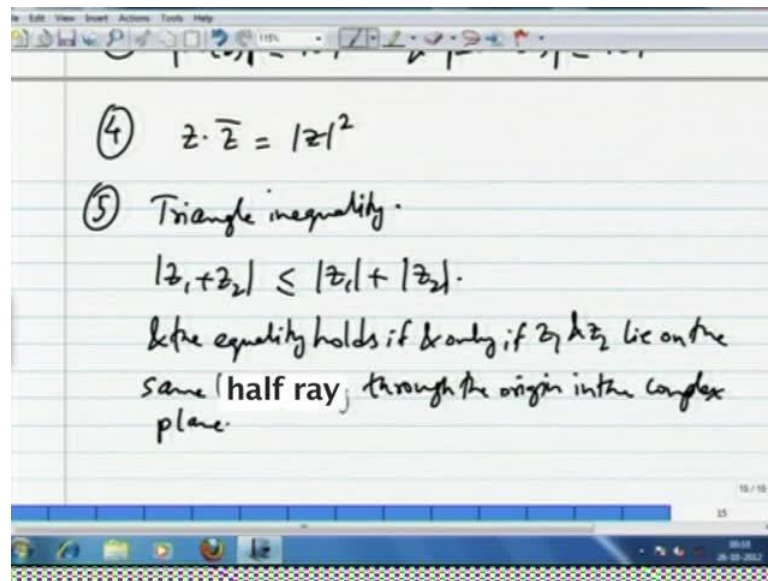 Edit View Insert Actions Tools Help
115%
④ z · z̄ = |z|²
⑤ Triangle inequality.
|z₁+z₂| ≤ |z₁| + |z₂|.
& the equality holds if & only if z₁ & z₂ lie on the
same half ray through the origin in the complex
plane.
15 / 15
15
26-10-2012